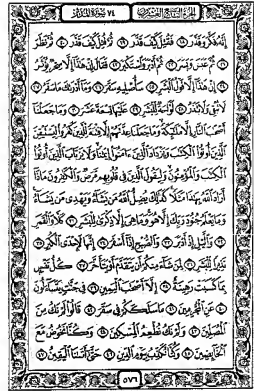 الجزء التاسع والعشرون ٧٤ سورة المدثر
إنه فكر وقدر ١٨ فقتل كيف قدر ١٩ ثم قتل كيف قدر ٢٠ ثم نظر
٢١ ثم عبس وبسر ٢٢ ثم أدبر واستكبر ٢٣ فقال إن هذا إلا سحر يؤثر
٢٤ إن هذا إلا قول البشر ٢٥ سأصليه سقر ٢٦ وما أدراك ما سقر ٢٧
لا تبقي ولا تذر ٢٨ لواحة للبشر ٢٩ عليها تسعة عشر ٣٠ وما جعلنا
أصحاب النار إلا ملائكة وما جعلنا عدتهم إلا فتنة للذين كفروا ليستيقن
الذين أوتوا الكتاب ويزداد الذين ءامنوا إيمانا ولا يرتاب الذين أوتوا
الكتاب والمؤمنون وليقول الذين في قلوبهم مرض والكافرون ماذا
أراد الله بهذا مثلا كذلك يضل الله من يشاء ويهدي من يشاء
وما يعلم جنود ربك إلا هو وما هي إلا ذكرى للبشر ٣١ كلا والقمر
٣٢ والليل إذ أدبر ٣٣ والصبح إذا أسفر ٣٤ إنها لإحدى الكبر ٣٥
نذيرا للبشر ٣٦ لمن شاء منكم أن يتقدم أو يتأخر ٣٧ كل نفس
بما كسبت رهينة ٣٨ إلا أصحاب اليمين ٣٩ في جنات يتساءلون
٤٠ عن المجرمين ٤١ ما سلككم في سقر ٤٢ قالوا لم نك من
المصلين ٤٣ ولم نك نطعم المسكين ٤٤ وكنا نخوض مع
الخائضين ٤٥ وكنا نكذب بيوم الدين ٤٦ حتى أتانا اليقين ٤٧
٥٧٦